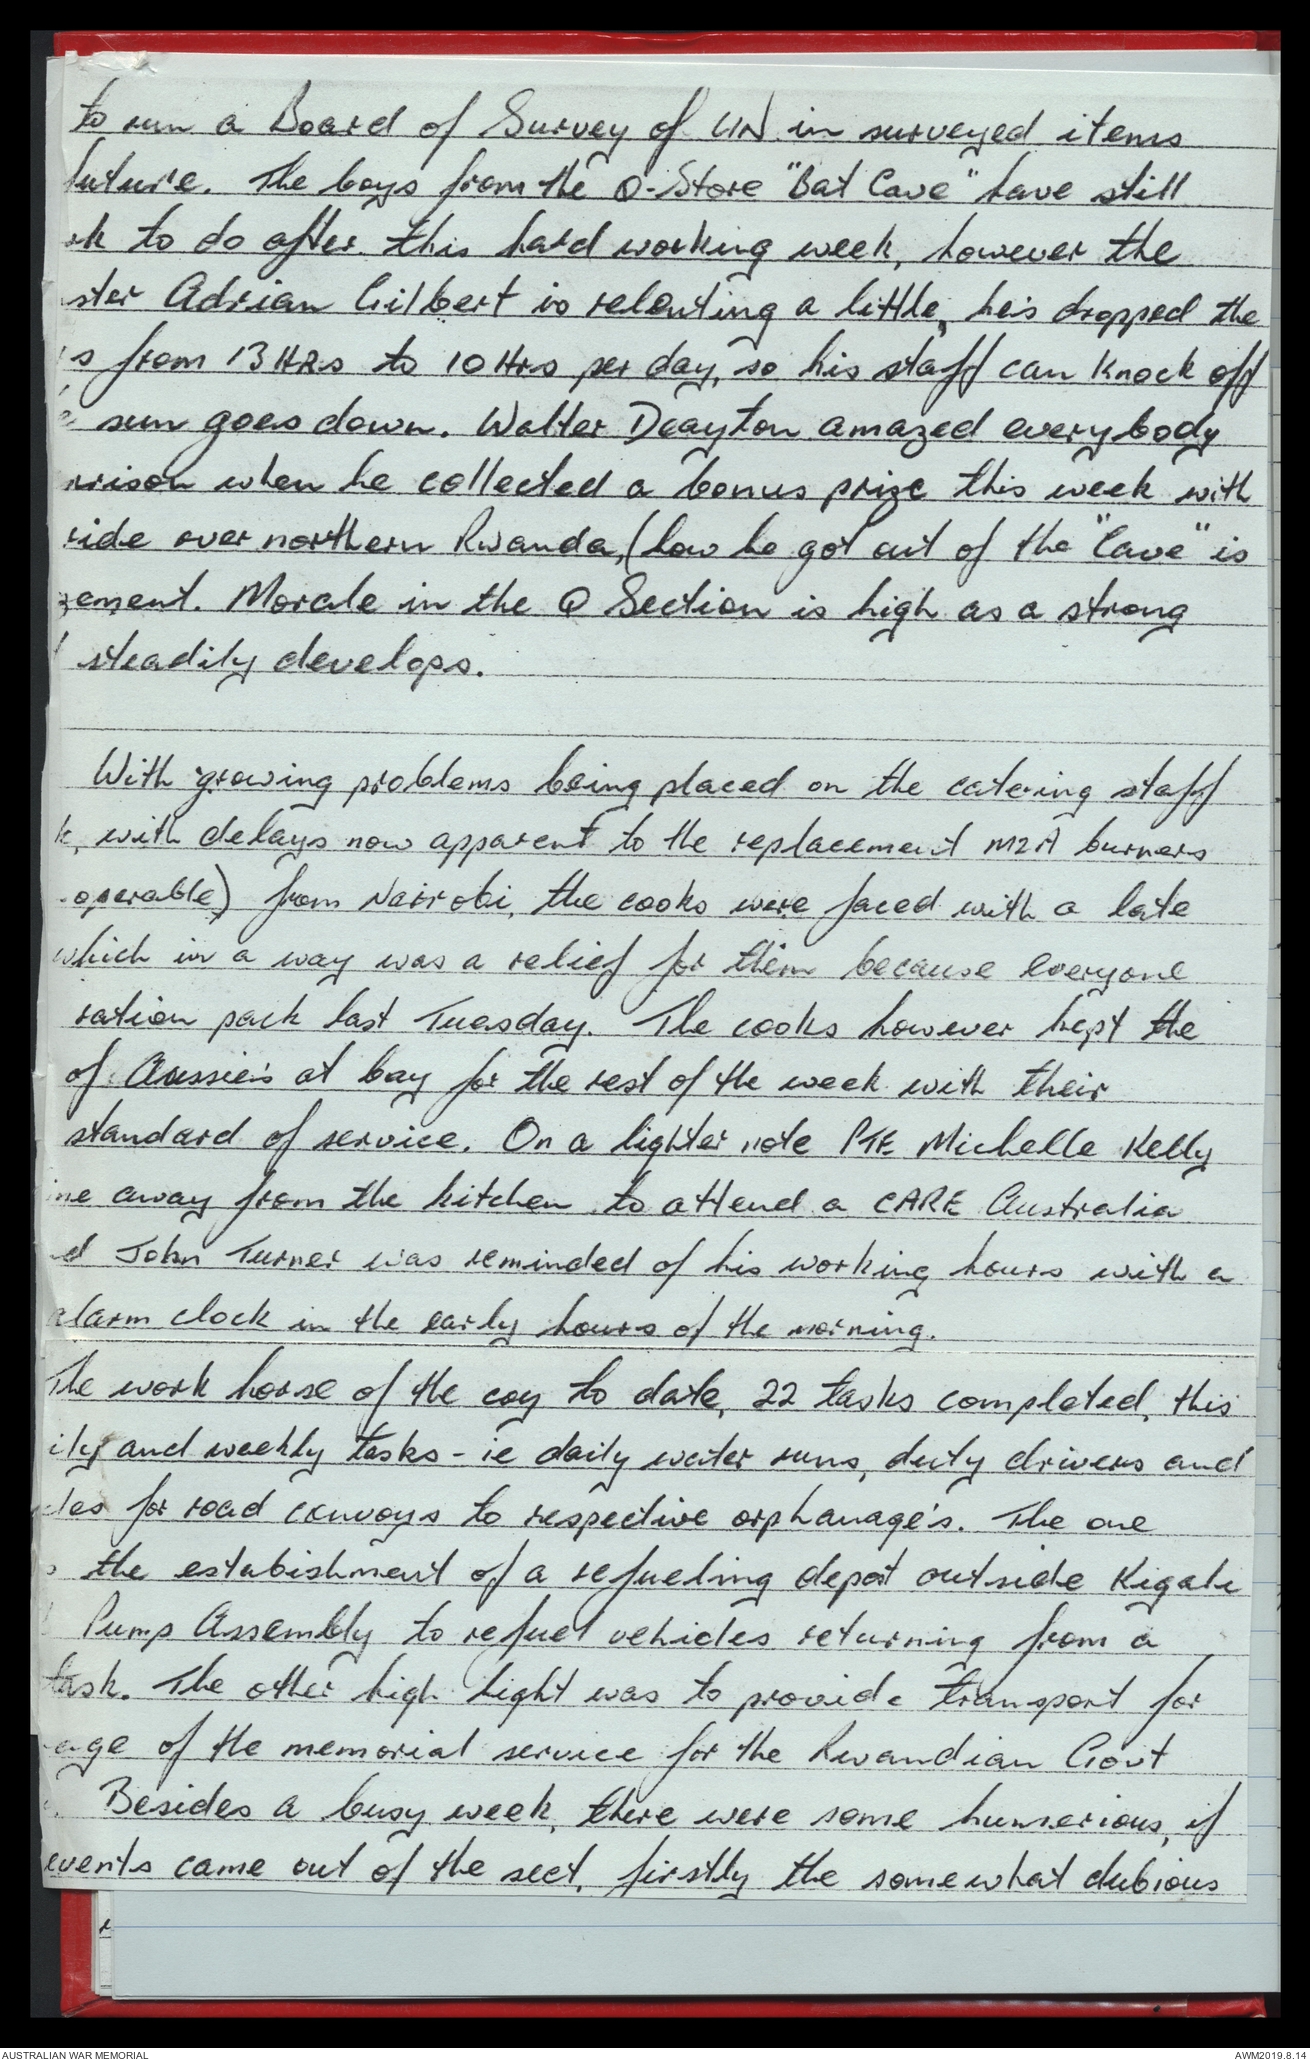 to run a Board of Survey of UN in surveyed items
future. The boys from the Q-Store "Bat Cave" have still
rk to do after this hard working week, however the
ster Adrian Gilbert is relenting a little, he's dropped the
s from 13HRs to 10Hrs per day, so his staff can knock off
e sun goes down. Walter Deayton amazed everybody
rrison when he collected a bonus prize this week with
ride over northern Rwanda, (how he got out of the "Cave" is
zement. Morale in the Q Section is high as a strong
steadily develops.
With growing problems being placed on the catering staff
k, with delays now apparent to the replacement M2A burners
operable) from Nairobi, the cooks were faced with a late
which in a way was a relief for them because everyone
ration pack last Tuesday. The cooks however kept the
of Aussie's at bay for the rest of the week with their
standard of service. On a lighter note PTE Michelle Kelly
me away from the kitchen to attend a CARE Australia
d John Turner was reminded of his working hours with a
alarm clock in the early hours of the morning.
The work horse of the coy to date, 22 tasks completed, this
ily and weekly tasks - ie daily water runs, duty drivers and
les for road convoys to respective orphanage's. The one
s the estabishment of a refueling depot outside Kigali
Pump Assembly to refuel vehicles returning from a
task. The other high light was to provide transport for
age of the memorial service for the Rwandian Govt
Besides a busy week, there were some humserious, if
events came out of the sect, firstly the somewhat dubious
AUSTRALIAN WAR MEMORIAL
AWM2019.8.14